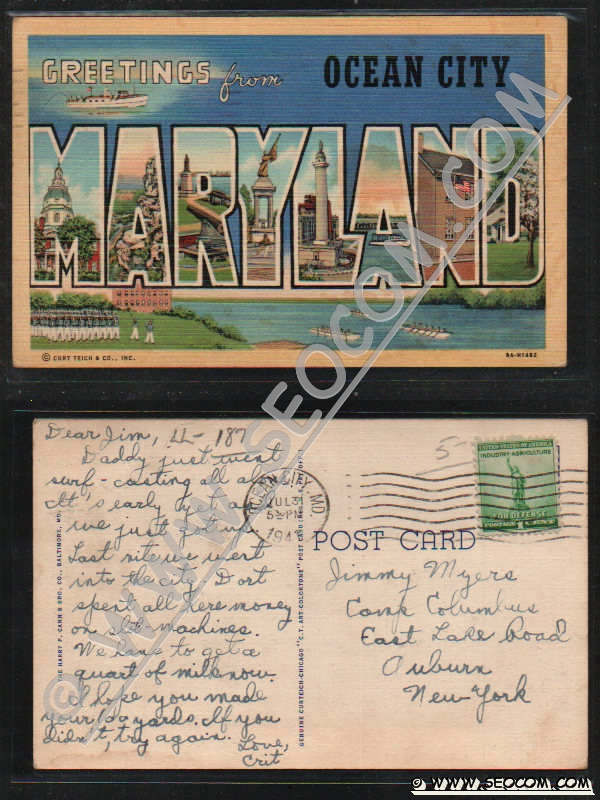 GREETINGS from OCEAN CITY
MARYLAND
© CURT TEICH & CO., INC.
Dear Jim, LL-187
Daddy just went
surf-casting all alone.
It's early yet as
we just got up.
Last nite we went
into the city. Dort
spent all here money
on slot machines.
We came to get a
quart of milk now.
I hope you made
your 100 yards. If you
didn't, try again.
Love,
Crit
THE HARRY P. CANN & BRO. CO., BALTIMORE, MD.
GENUINE CURTEICH-CHICAGO "C.T. ART-COLORTONE" POST CARD
OCEAN CITY, MD.
JUL 31
5 PM
194
5-
UNITED STATES OF AMERICA
INDUSTRY-AGRICULTURE
FOR DEFENSE
POST CARD
Jimmy Myers
Camp Columbus
East Lake Road
Auburn
New York
© WWW.SEOCOM.COM
© WWW.SEOCOM.COM